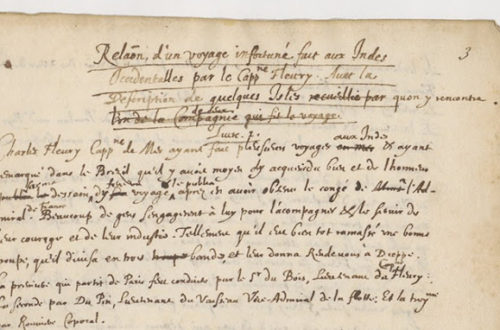 3
Relaõn, d'un voyage infortuné fait aux Indes
Occidentalles par le Capp.ne Fleury. Avec la
Description de quelques Isles recueillie par qu'on y rencontre
l'un de la Compagnie qui fit le voyage.
Livre. 1.
Charles Fleury Capp.ne de Mer ayant fait plusieurs voyages aux Indes & ayant
remarqué dans le Brezil qu'il y auoit moyen d'y acquerir du bien et de l'honneur
dessein, d'y voyage, apres en auoir obtenu le congé de l'Ad-
miral de France. Beaucoup de gens s'engagerent à luy pour l'acompagner & le seruir de
leur courage et de leur industrie. Tellement qu'il eu bien tot ramassé vne bonne
troupe, qu'il diuisa en trois bandes et leur donna Rendeuous a Dieppe.
La premiere qui partit de Paris feu conduite par le S.r du Bois, Lieutenant de Fleury:
La seconde par Du Pin, Lieutenant du Vaisseau Vice-Admiral de la flotte: Et la troy.me
par Caporal.